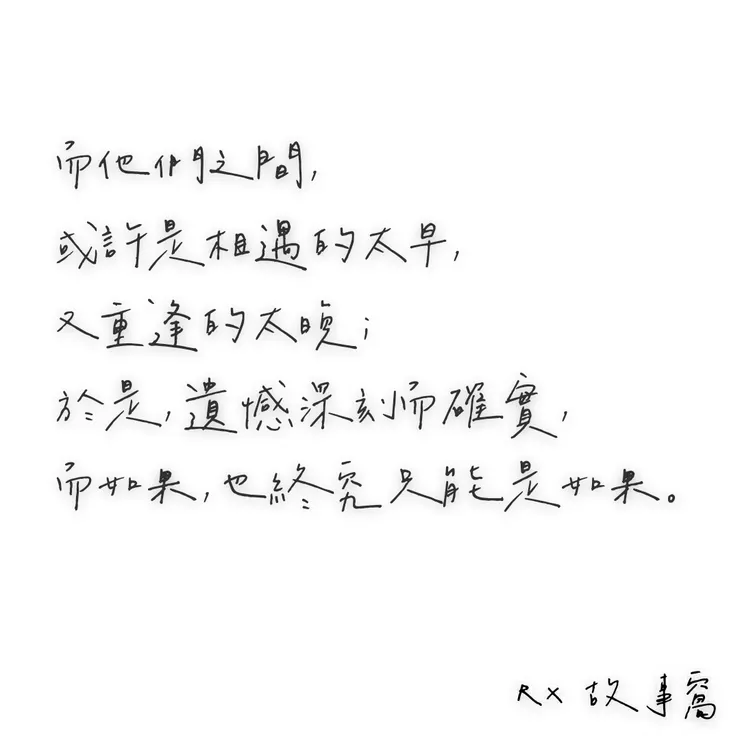 而他們之間，
或許是相遇的太早，
又重逢的太晚；
於是，遺憾深刻而確實，
而如果，也終究只能是如果。
RX 故事窩